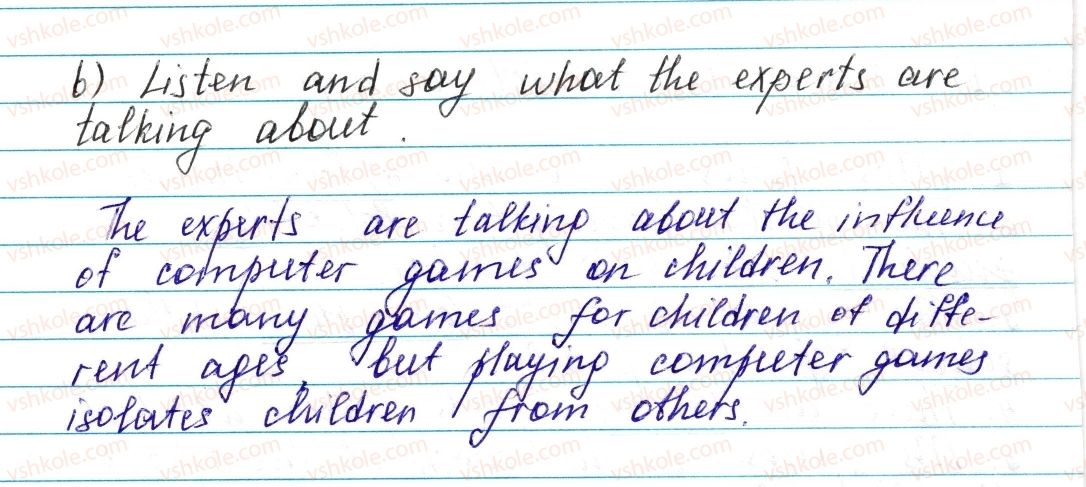 b) Listen and say what the experts are
talking about.
The experts are talking about the influence
of computer games on children. There
are many games for children of diffe-
rent ages, but playing computer games
isolates children from others.